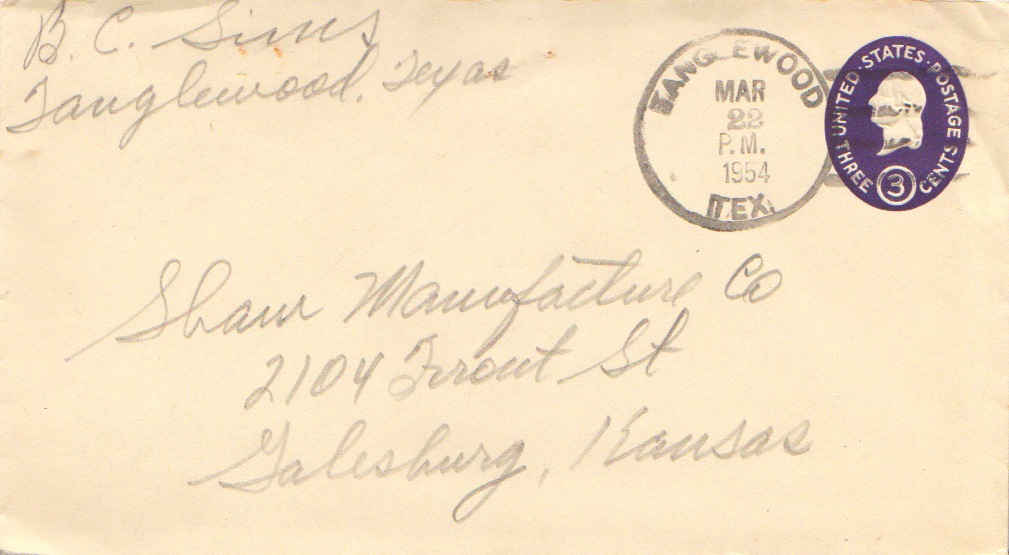 B. C. Sims
Tanglewood, Texas
TANGLEWOOD
MAR
22
P.M.
1954
TEX.
UNITED·STATES·POSTAGE
THREE 3 CENTS
Shaw Manufacture Co
2104 Front St
Galesburg, Kansas